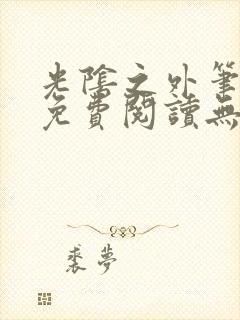 光陰之外筆
免費閱讀無
裘夢